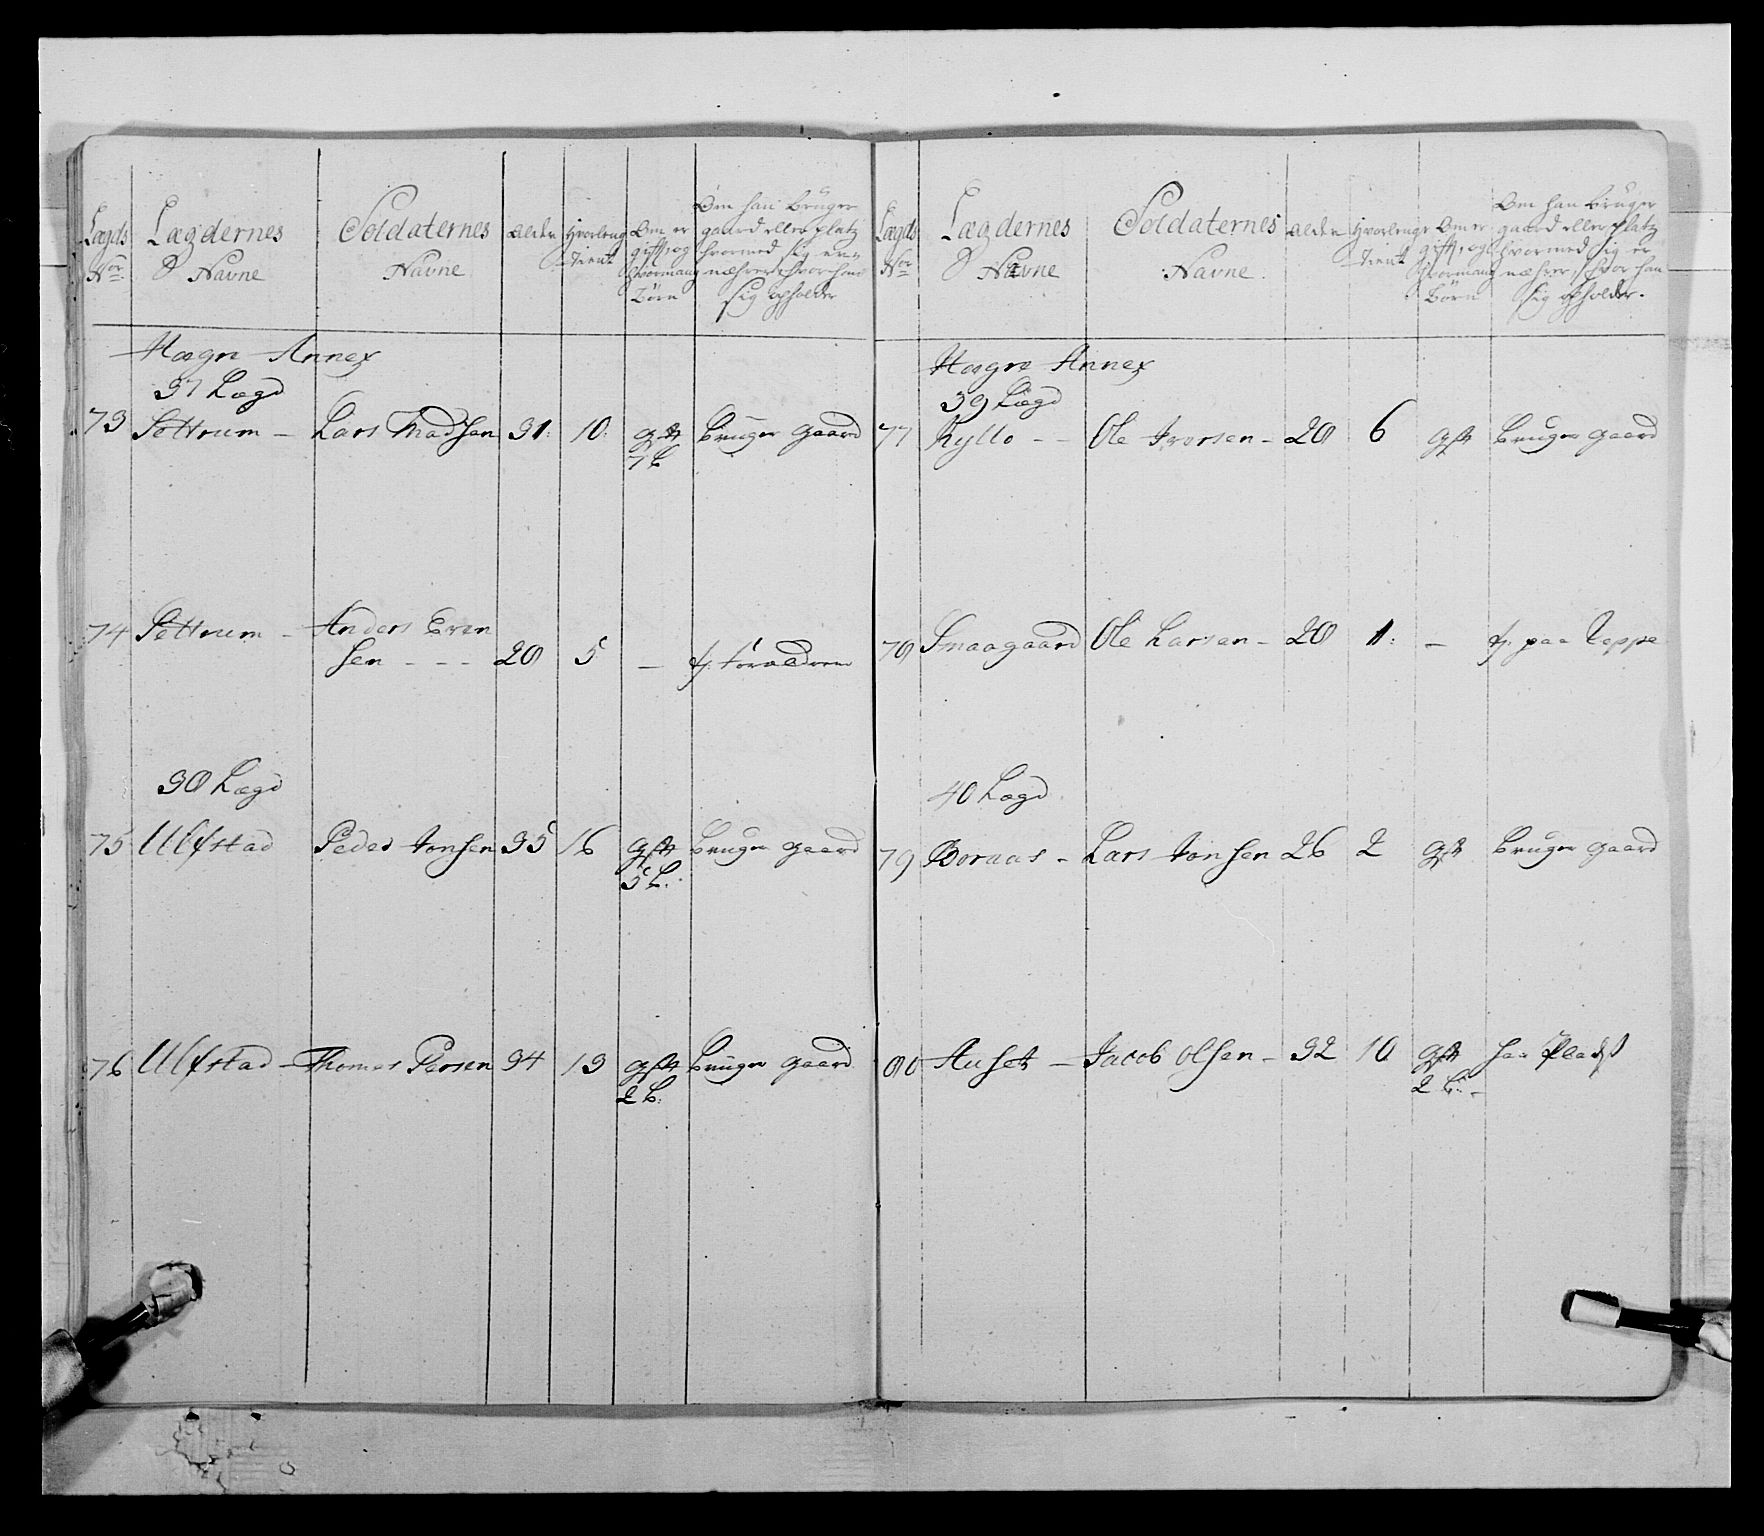 Lægds Nor
Lægdernes Navne
Soldaternes Navne
Alder
Hvorlenge Tient
Om er gifft, og Hvormang Børn
Om han bruger gaard eller platz hvormed sig ernæhrer, hvor hand sig opholder
Hægre Annex
37 Lægd
73 Settrum - Lars Madsen 31: 10: gift 7 b bruger gaard
74 Settrum - Anders Even
sen - - - 28 5 - tj. forældrene
38 Lægd
75 Ulfstad Peder Jonsen 35 16 gift 5 b. bruger gaard
76 Ulfstad - Thomas Persen 34 13 gift 2 b. bruger gaard
Lægds Nor
Lægdernes Navne
Soldaternes Navne
Alder
Hvorlenge Tient
Om er gifft, og Hvormang Børn
Om han bruger gaard eller platz hvormed sig er næhrer, hvor han sig opholder.
Hægre Annex
39 Lægd
77 Kyllo - - Ole Iversen - 28 6 gift bruger gaard
78 Smaagaard Ole Larsen - 28 1: - tj. paa
40 Lægd
79 Boraas - Lars Jonsen 26 2 gift bruger gaard
80 Auset - Jacob Olsen - 32 10 gift 2 b. - har Pladss